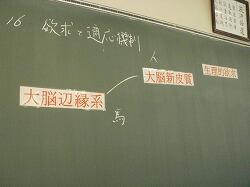 16 欲求と適応機制
人
大脳新皮質
生理的欲求
大脳辺縁系
馬